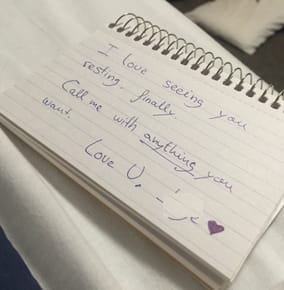 I love seeing you
resting. finally.
Call me with anything you
want.
Love U.